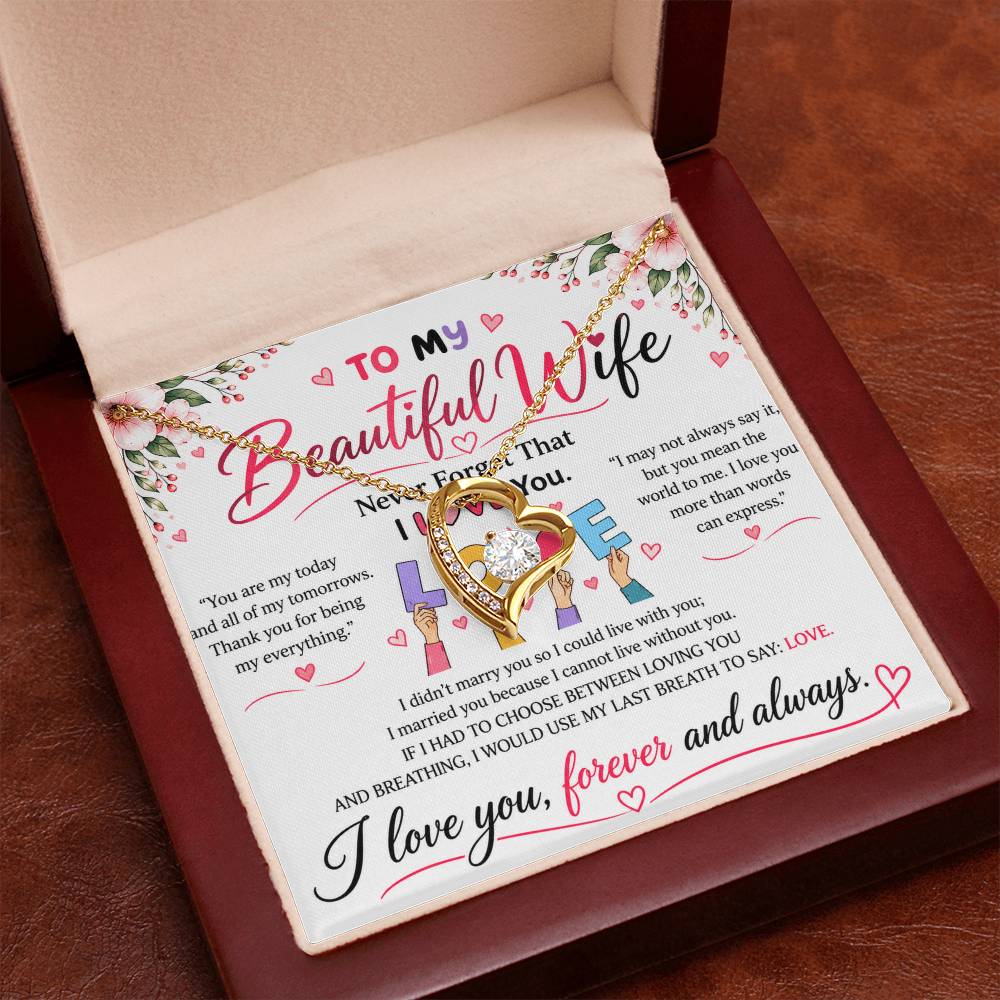 TO MY
Beautiful Wife
Never Forget That
I LOVE You.
"I may not always say it,
but you mean the
world to me. I love you
more than words
can express."
"You are my today
and all of my tomorrows.
Thank you for being
my everything."
L E
I didn't marry you so I could live with you;
I married you because I cannot live without you.
IF I HAD TO CHOOSE BETWEEN LOVING YOU
AND BREATHING, I WOULD USE MY LAST BREATH TO SAY: LOVE.
I love you, forever and always.